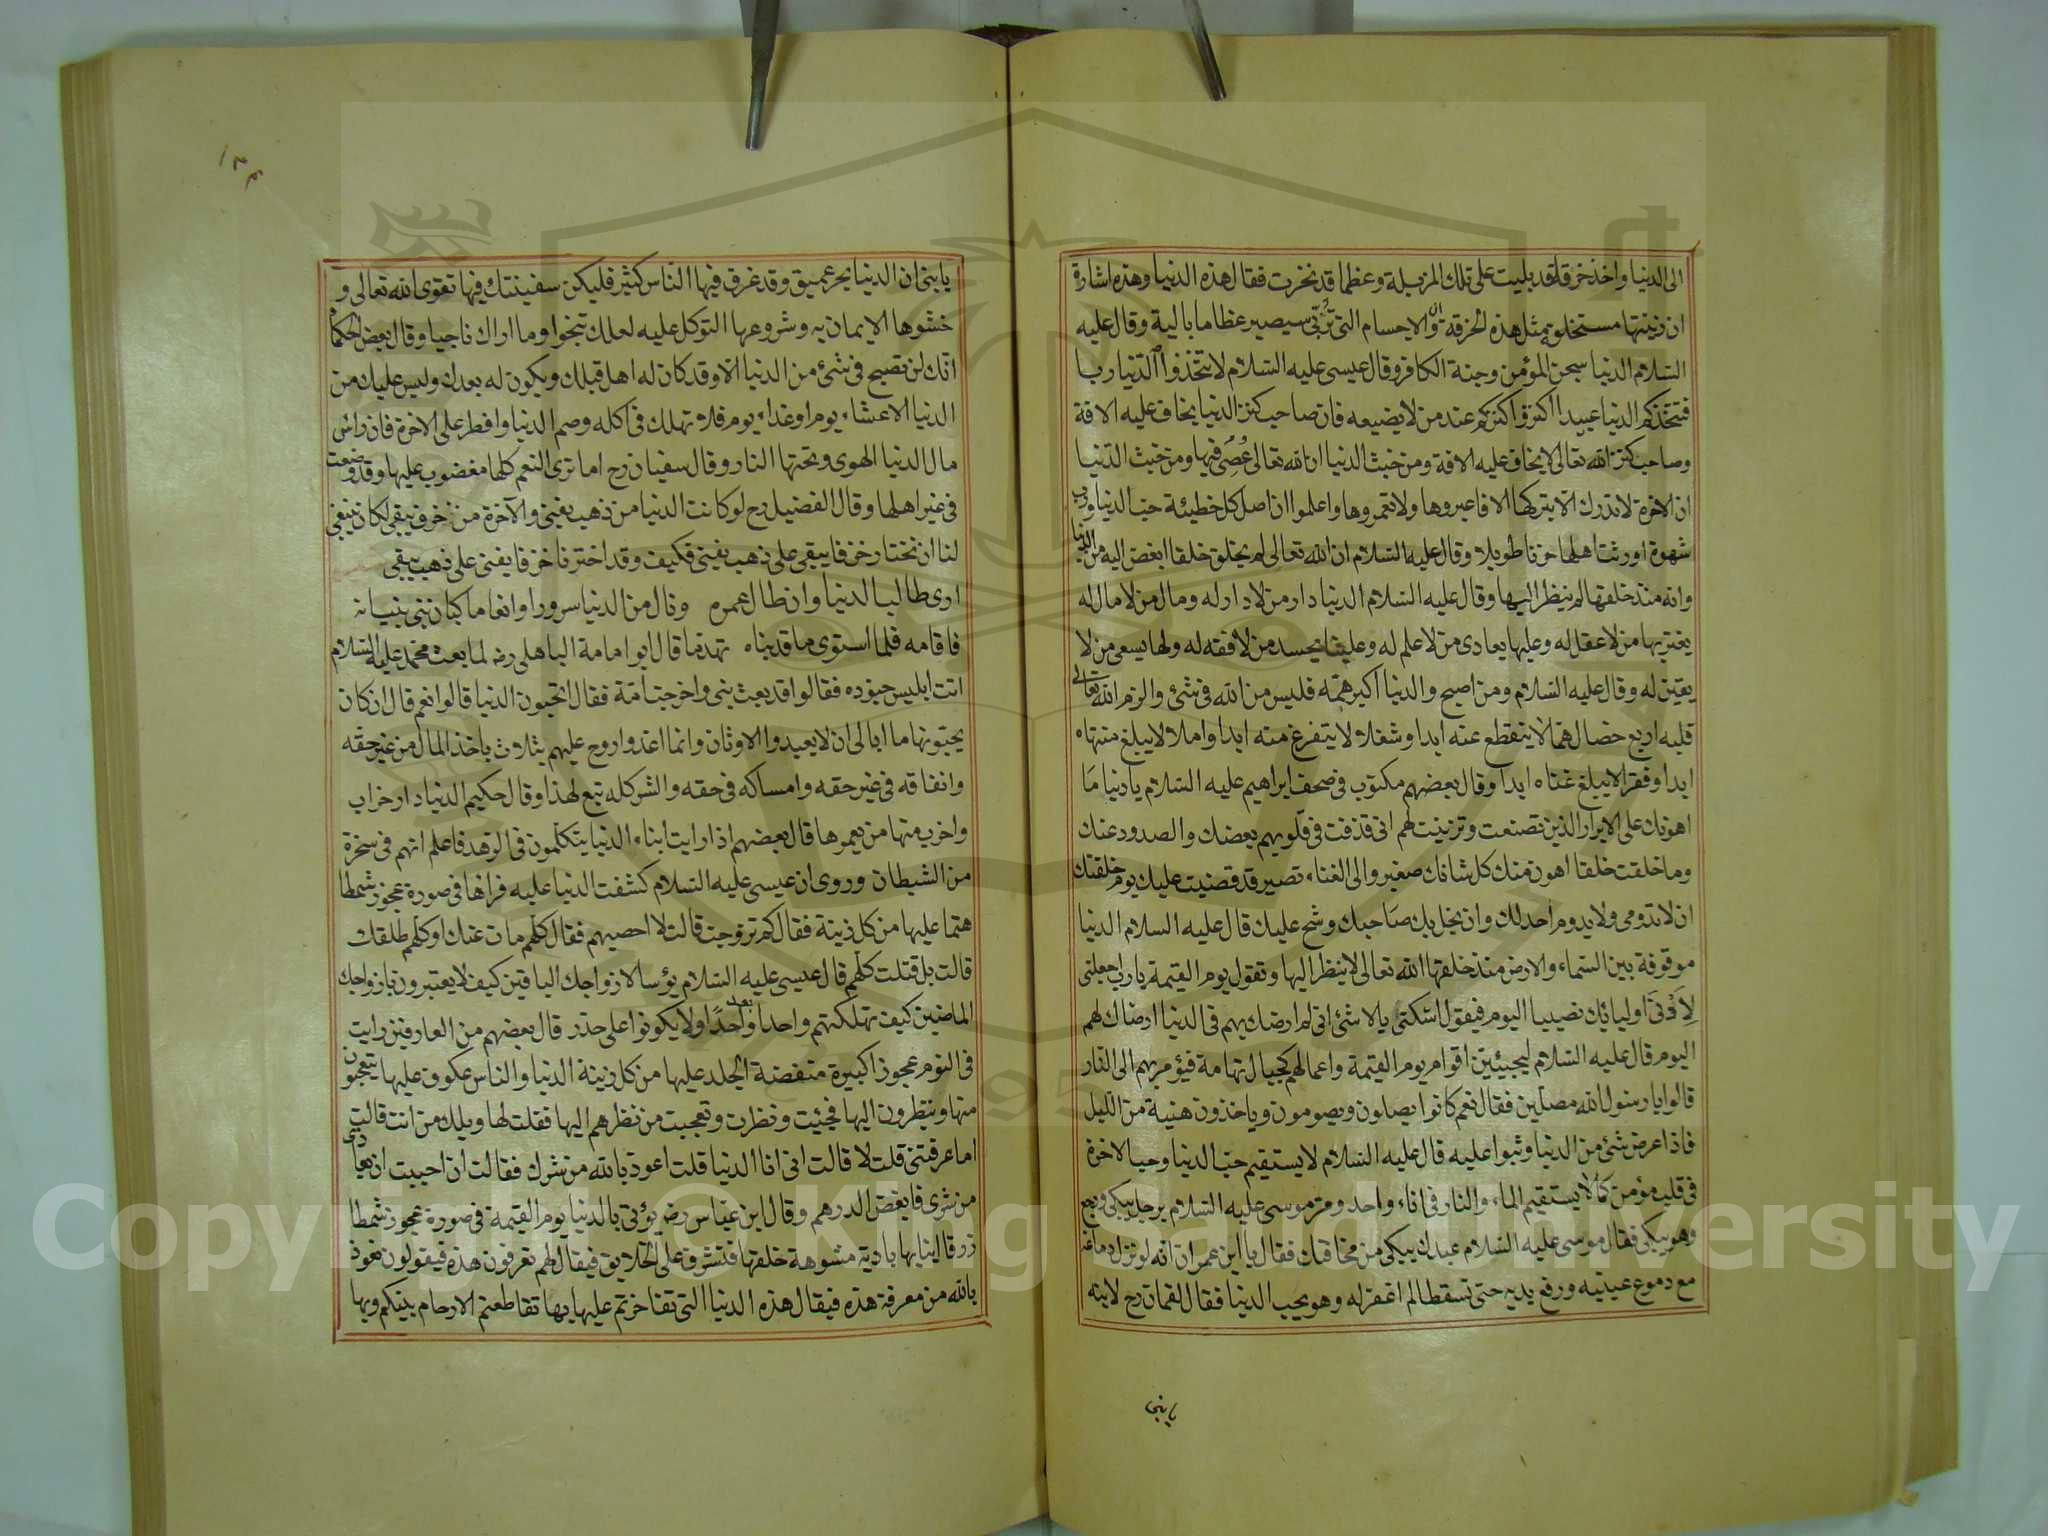 الى الدنيا واخذ خرقة قد بليت على تلك المزبلة وعظاما قد نخرت فقال هذه الدنيا وهذه اشارة
ان زينتها ستخلق مثل هذه الخرقة وان الاجسام التى تربى سيصير عظاما بالية وقال عليه
السلام الدنيا سجن المؤمن وجنة الكافر وقال عيسى عليه السلام لا تتخذوا الدنيا ربا
فتتخذكم الدنيا عبيدا اكنزوا كنزكم عند من لا يضيعه فان صاحب كنز الدنيا يخاف عليه الافة
وصاحب كنز الله تعالى لا يخاف عليه الافة ومن خبث الدنيا ان الله تعالى عصى فيها ومن خبث الدنيا
ان الاخرة لا تدرك الا بتركها الا فاعبروها ولا تعمروها واعلموا ان اصل كل خطيئة حب الدنيا ورب
شهوة اورثت اهلها حزنا طويلا وقال عليه السلام ان الله تعالى لم يخلق خلقا ابغض اليه من الدنيا
وانه منذ خلقها لم ينظر اليها وقال عليه السلام الدنيا دار من لا دار له ومال من لا مال له
يغتر بها من لا عقل له وعليها يعادى من لا علم له وعليها يحسد من لا فقه له ولها يسعى من لا
يقين له وقال عليه السلام ومن اصبح والدنيا اكبر همه فليس من الله فى شئ والزم الله تعالى
قلبه اربع خصال هما لا ينقطع عنه ابدا وشغلا لا يتفرغ منه ابدا واملا لا يبلغ منتهاه
ابدا وفقرا لا يبلغ غناه ابدا وقال بعضهم مكتوب فى صحف ابراهيم عليه السلام يا دنيا ما
اهونك على الابرار الذين تصنعت وتزينت لهم انى قذفت فى قلوبهم بغضك والصدود عنك
وما خلقت خلقا اهون منك كل شانك صغير والى الفناء تصير قد قضيت عليك يوم خلقتك
ان لا تدومى ولا يدوم احد لك وان بخل بك صاحبك وشح عليك قال عليه السلام الدنيا
موقوفة بين السماء والارض منذ خلقها الله تعالى لا ينظر اليها وتقول يوم القيمة يا رب اجعلنى
لادنى اوليائك نصيبا اليوم فيقول اسكتى يا لا شئ انى لم ارضك بهم فى الدنيا ارضاك لهم
اليوم قال عليه السلام ليجيئين اقوام يوم القيمة واعمالهم كجبال تهامة فيؤمر بهم الى النار
قالوا يا رسول الله مصلين فقال نعم كانوا يصلون ويصومون وياخذون هنية من الليل
فاذا عرض شئ من الدنيا وثبوا عليه قال عليه السلام لا يستقيم حب الدنيا وحب الاخرة
فى قلب مؤمن كما لا يستقيم الماء والنار فى اناء واحد ومر موسى عليه السلام برجل يبكى ورجع
وهو يبكى فقال موسى عليه السلام عبدك يبكى من مخافتك فقال يا ابن عمران انه لو نزل دماغه
مع دموع عينيه ورفع يديه حتى تسقطا لم اغفر له وهو يحب الدنيا فقال لقمان رح لابنه
يا بنى
١٣٤
يا بنى ان الدنيا بحر عميق وقد غرق فيها الناس كثير فليكن سفينتك فيها تقوى الله تعالى و
حشوها الايمان به وشروعها التوكل عليه لعلك تنجوا وما اراك ناجيا وقال بعض الحكما
انك لن تصبح فى شئ من الدنيا الا وقد كان له اهل قبلك ويكون له بعدك وليس عليك من
الدنيا الا عشاء يوم او غداء يوم فلا تهلك فى اكله وصم الدنيا وافطر على الاخرة فان راس
مال الدنيا الهوى وبحتها النار وقال سفيان رح اما ترى النعم كلها مغضوب عليها وقد وضعت
فى غير اهلها وقال الفضيل رح لو كانت الدنيا من ذهب يفنى والآخرة من خزف يبقى لكان ينبغى
لنا ان نختار خزفا يبقى على ذهب يفنى فكيف وقد اخترنا خزفا يفنى على ذهب يبقى
ارى طالب الدنيا وان طال عمره ونال من الدنيا سرورا وانعاما كبان بنى بنيانه
فاقامه فلما استوى ما قد بناه تهدما قال ابو امامة الباهلى رض لما بعث محمد عليه السلام
اتت ابليس جنوده فقالوا قد بعث نبى واخرجت امة فقال اتحبون الدنيا قالوا نعم قال ان كان
يحبونها ما ابالى ان لا يعبدوا الاوثان وانما اغدوا روح عليهم بثلاث باخذ المال من غير حقه
وانفاقه فى غير حقه وامساكه فى حقه والشر كله تبع لهذا وقال حكيم الدنيا دار خراب
واخرب منها من يعمرها قال بعضهم اذا رايت ابناء الدنيا يتكلمون فى الزهد فاعلم انهم فى سخرة
من الشيطان وروى ان عيسى عليه السلام كشفت الدنيا عليه فراها فى صورة عجوز شمطا
هتما عليها من كل زينة فقال كم تزوجت قالت لا احصيهم فقال كلهم مات عنك او كلهم طلقك
قالت بل قتلت كلهم قال عيسى عليه السلام بؤسا لازواجك الباقين كيف لا يعتبرون بازواجك
الماضين كيف تهلكتهم واحدا بعد واحدا ولا يكونوا على حذر قال بعضهم من العارفين رايت
فى النوم عجوزا كبيرة متغضنة الجلد عليها من كل زينة الدنيا والناس عكوف عليها يتعجبون
منها وينظرون اليها فجئيت ونظرت وتعجبت من نظرهم اليها فقلت لها ويلك من انت قالت
اما عرفتنى قلت لا قالت انى انا الدنيا قلت اعوذ بالله من شرك فقالت ان احببت ان تعاذى
من شرى فابغض الدرهم وقال ابن عباس رض يؤتى بالدنيا يوم القيمة فى صورة عجوز شمطا
زرقا انيابها بادية مشوهة خلقها فتشرف على الخلايق فيقال لهم تعرفون هذه فيقولون نعوذ
بالله من معرفة هذه فيقال هذه الدنيا التى تفاخرتم عليها بها تقاطعتم الارحام بينكم وبها
Copyright © King Saud University